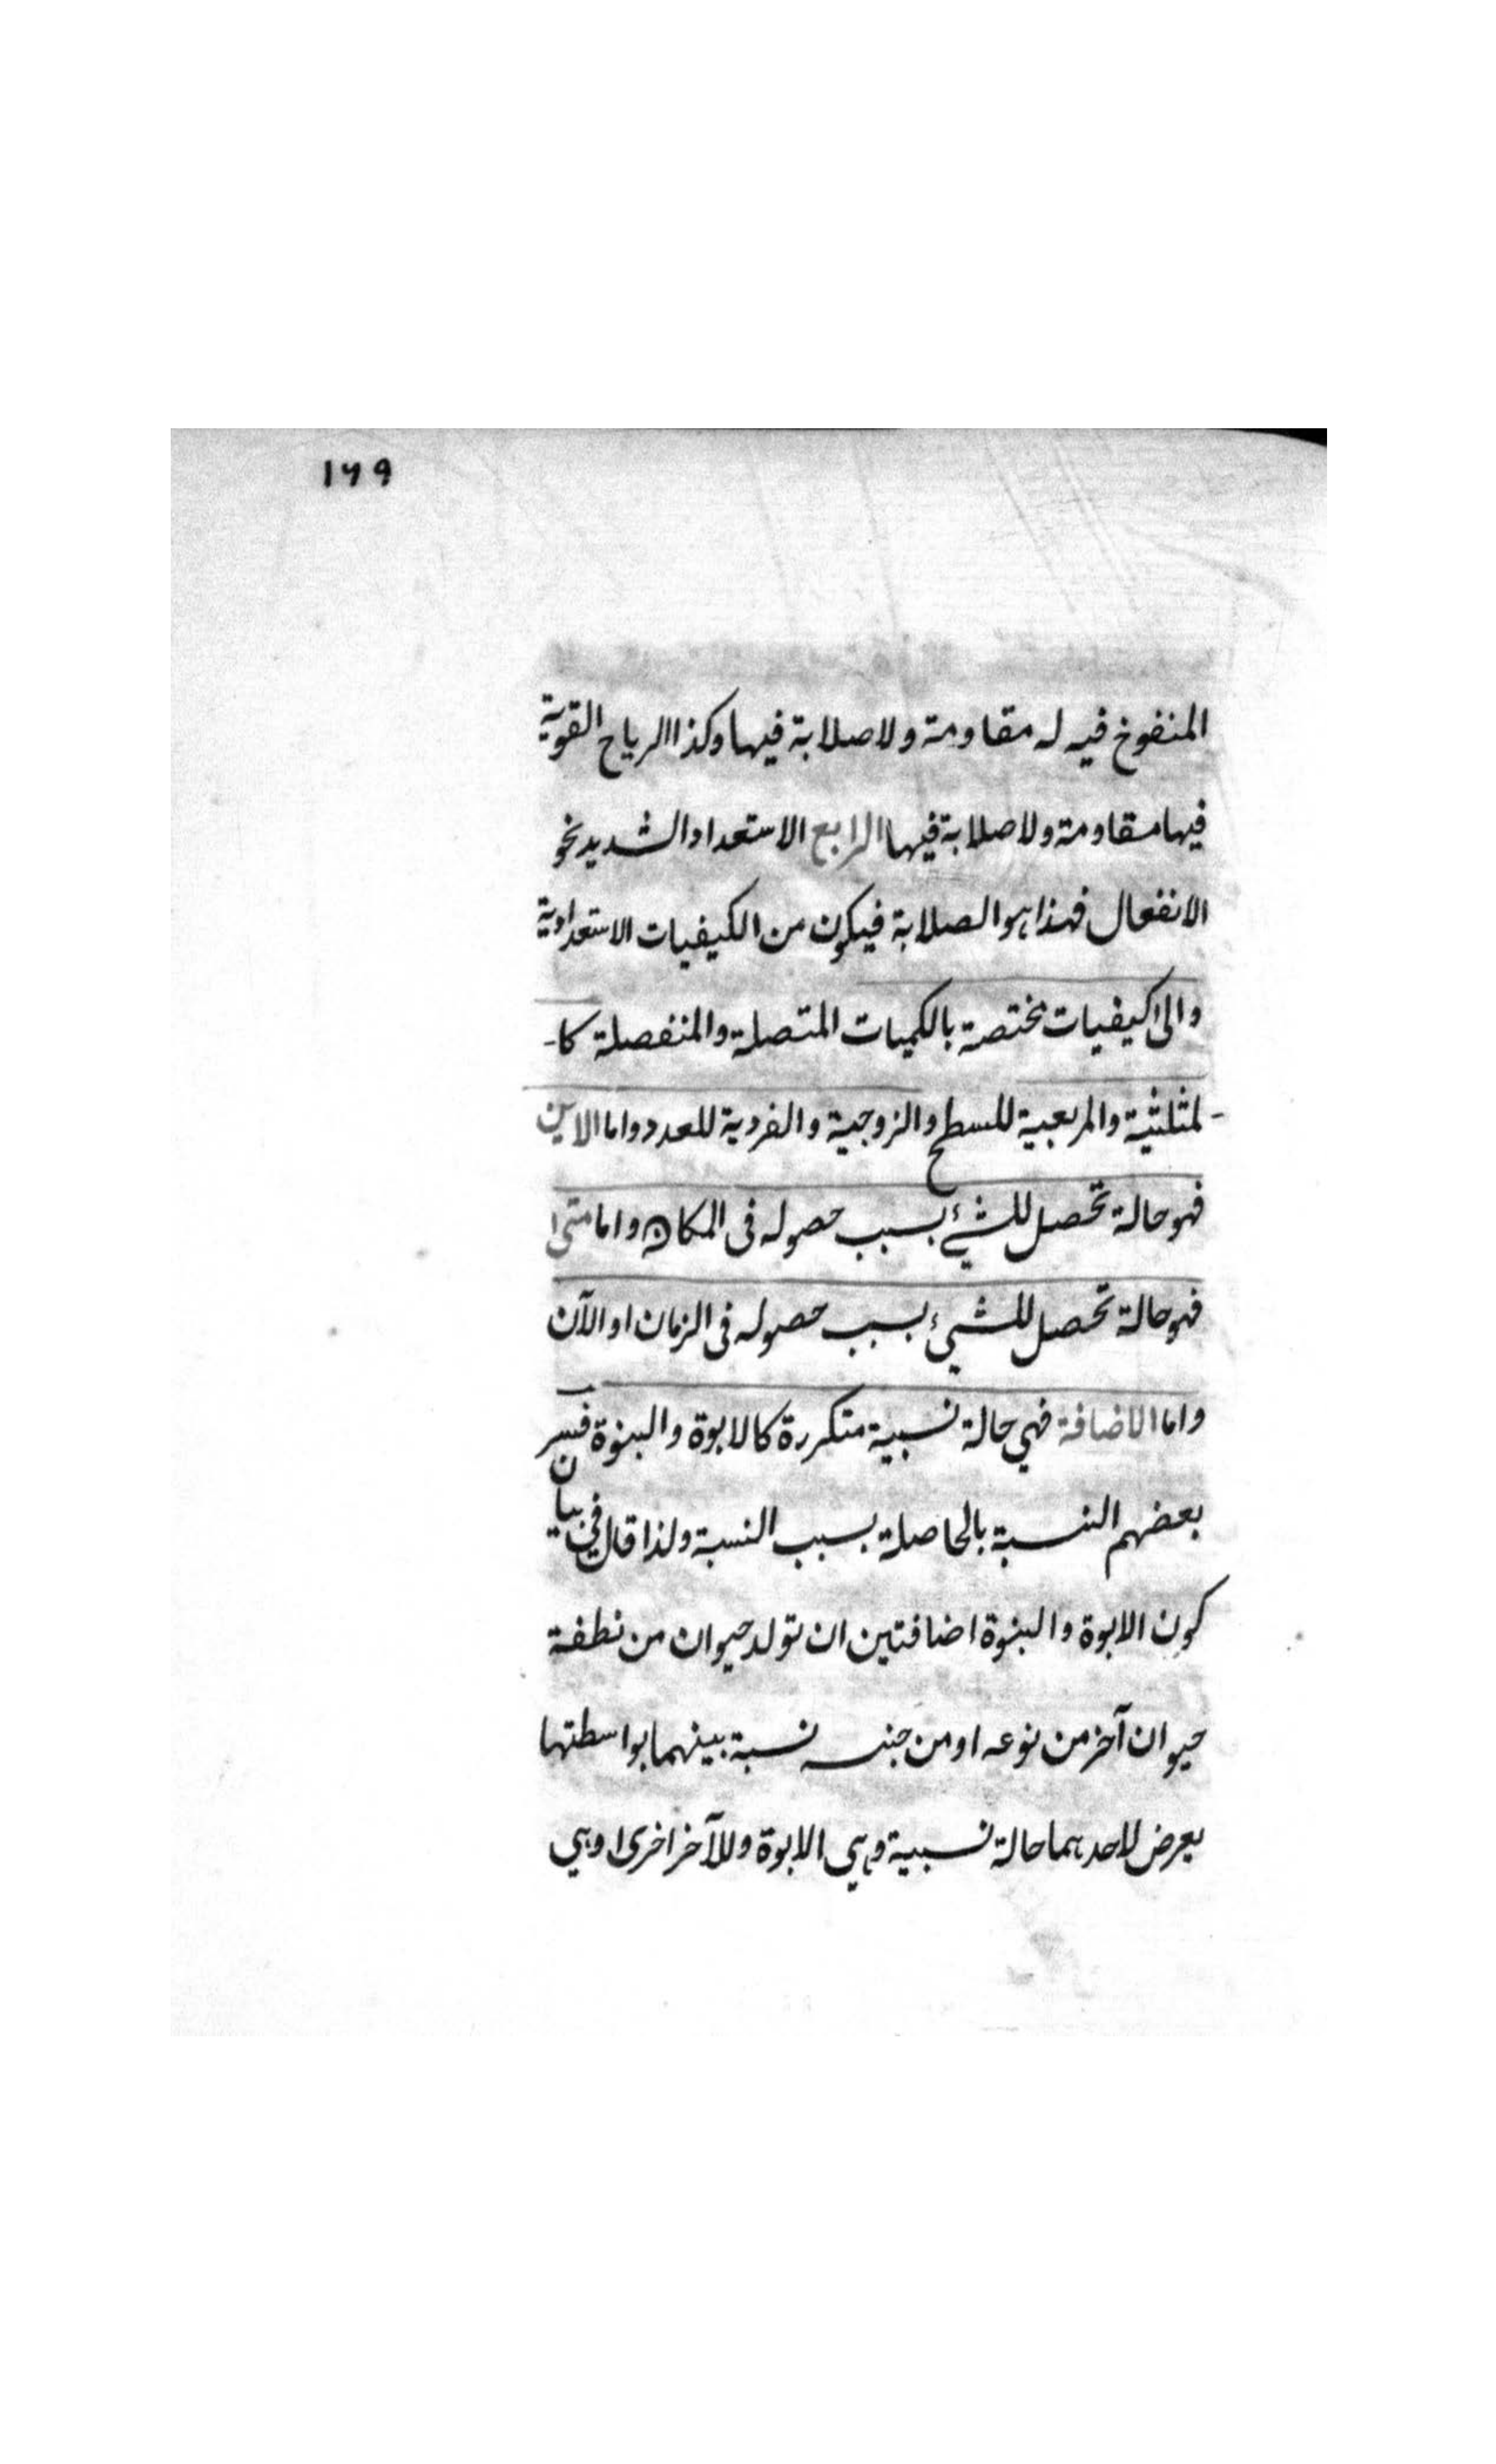 ١٦٩
المنفوخ فيه له مقاومة ولا صلابة فيها وكذا الرياح القوية
فيها مقاومة ولا صلابة فيها الرابع الاستعداد الشديد نحو
الانفعال فهذا هو الصلابة فيكون من الكيفيات الاستعدادية
والى كيفيات مختصة بالكميات المتصلة والمنفصلة كا-
-لمثلثية والمربعية للسطح والزوجية والفردية للعدد واما الاين
فهو حالة تحصل للشيء بسبب حصوله فى المكان واما متى
فهو حالة تحصل للشيء بسبب حصوله فى الزمان او الآن
واما الاضافة فهي حالة نسبية متكررة كالابوة والبنوة فسر
بعضهم النسبة بالحاصلة بسبب النسبة ولذا قال في بيان
كون الابوة والبنوة اضافتين ان تولد حيوان من نطفة
حيوان آخر من نوعه او من جنسه نسبة بينهما بواسطتها
يعرض لاحدهما حالة نسبية وهي الابوة وللآخر اخرى وهي